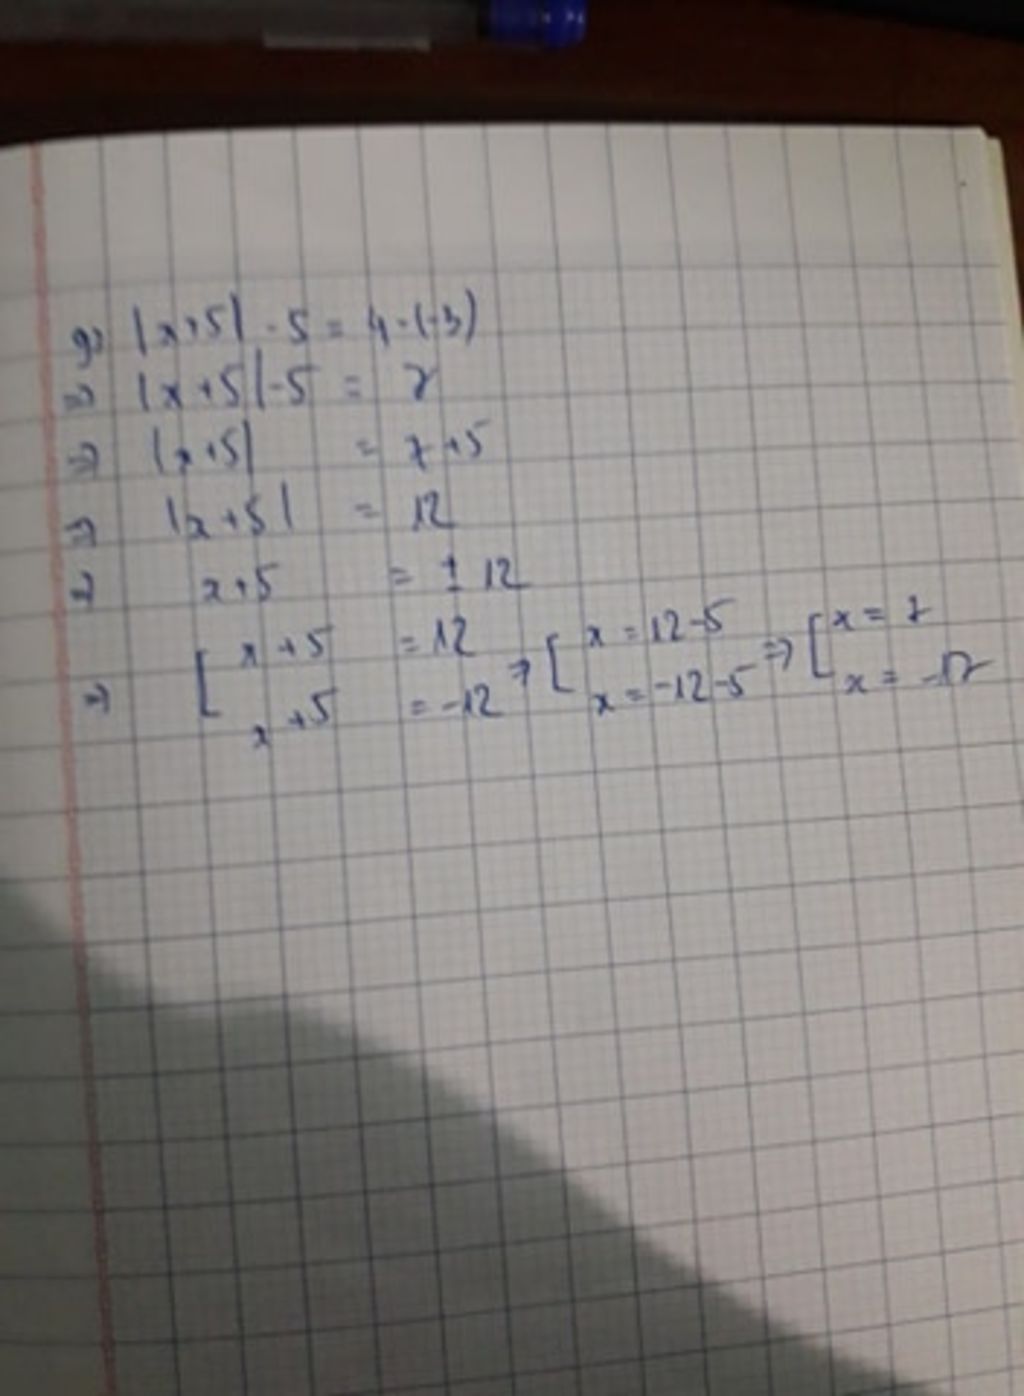 g) |x+5| - 5 = 4 - (-3)
=> |x+5| - 5 = 7
=> |x+5| = 7+5
=> |x+5| = 12
=> x+5 = ± 12
=> [ x+5 = 12 => [ x = 12-5 => [ x = 7
x+5 = -12 x = -12-5 x = -17